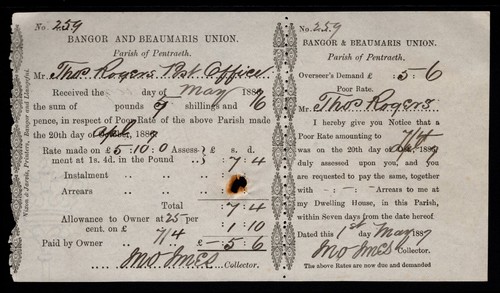 No. 259
BANGOR AND BEAUMARIS UNION.
Parish of Pentraeth.
Mr. Thos Rogers Post Office
Received the day of May 1887
the sum of pounds 5 shillings and 6
pence, in respect of Poor Rate of the above Parish made
the 20th day of October, Apl 1887
Rate made on £5:10:0 Assess- £ s. d.
ment at 1s. 4d. in the Pound :7:4
Instalment
Arrears
Total :7:4
Allowance to Owner at 25 per
cent. on £ 7/4 1:10
Paid by Owner £-5:6
Jno Jones Collector.
Nixon & Jarvis, Printers, Bangor and Llangefni.
No. 259
BANGOR & BEAUMARIS UNION.
Parish of Pentraeth.
Overseer's Demand £ :5:6
Poor Rate.
Mr. Thos Rogers
I hereby give you Notice that a
Poor Rate amounting to 7/4
was on the 20th day of Apl 1887
duly assessed upon you, and you
are requested to pay the same, together
with -:-:- Arrears to me at
my Dwelling House, in this Parish,
within Seven days from the date hereof
Dated this 1st day May 1887
Jno Jones Collector.
The above Rates are now due and demanded